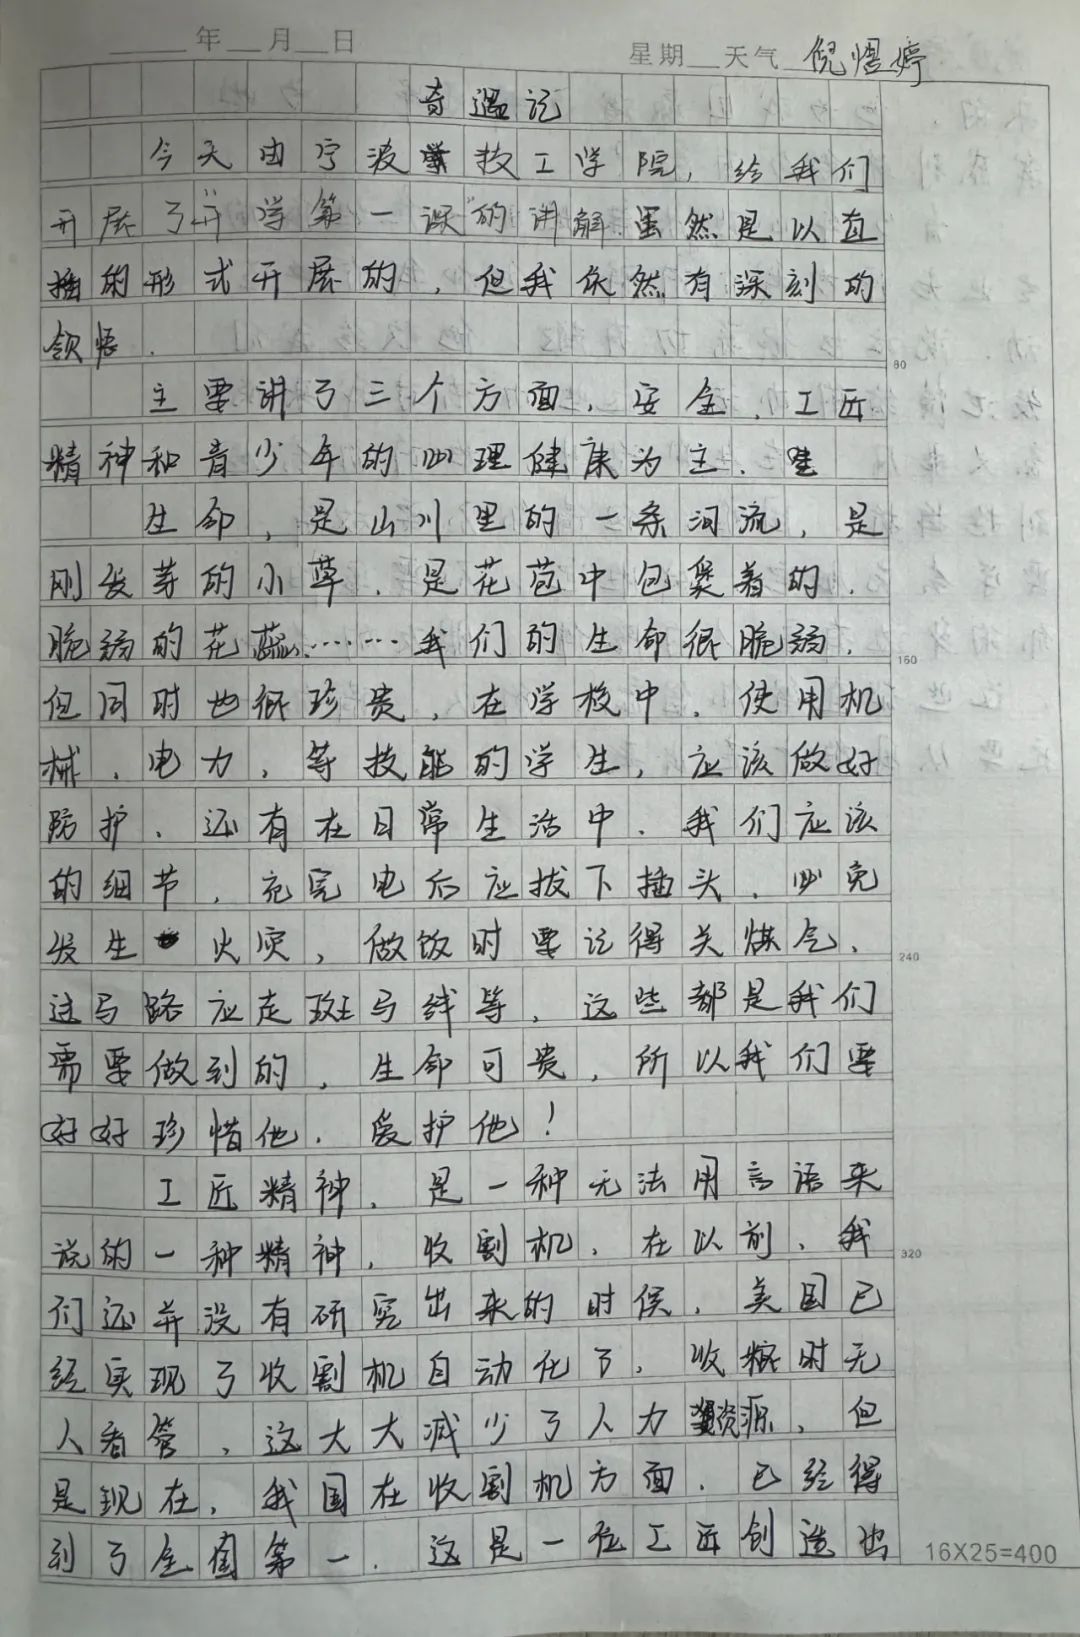 年 月 日
星期 天气 倪愠婷
奇遇记
今天由宁波技工学院，给我们
开展了"开学第一课"的讲解虽然是以直
播的形式开展的，但我依然有深刻的
领悟.
80
主要讲了三个方面，安全、工匠
精神和青少年的心理健康为主.
生命，是山川里的一条河流，是
刚发芽的小草，是花苞中包裹着的，
脆弱的花蕊……我们的生命很脆弱，
160
但同时也很珍贵，在学校中，使用机
械、电力，等技能的学生，应该做好
防护、还有在日常生活中，我们应该
的细节，充完电后应拔下插头，必免
发生火灾，做饭时要记得关煤气、
240
过马路应走斑马线等，这些都是我们
需要做到的，生命可贵，所以我们要
好好珍惜他，爱护他！
工匠精神，是一种无法用言语来
说的一种精神，收割机，在以前，我
320
们还并没有研究出来的时候，美国已
经实现了收割机自动化了，收粮时无
人看管，这大大减少了人力资源，但
是现在，我国在收割机方面，已经得
到了全国第一.这是一位工匠创造出
16X25=400